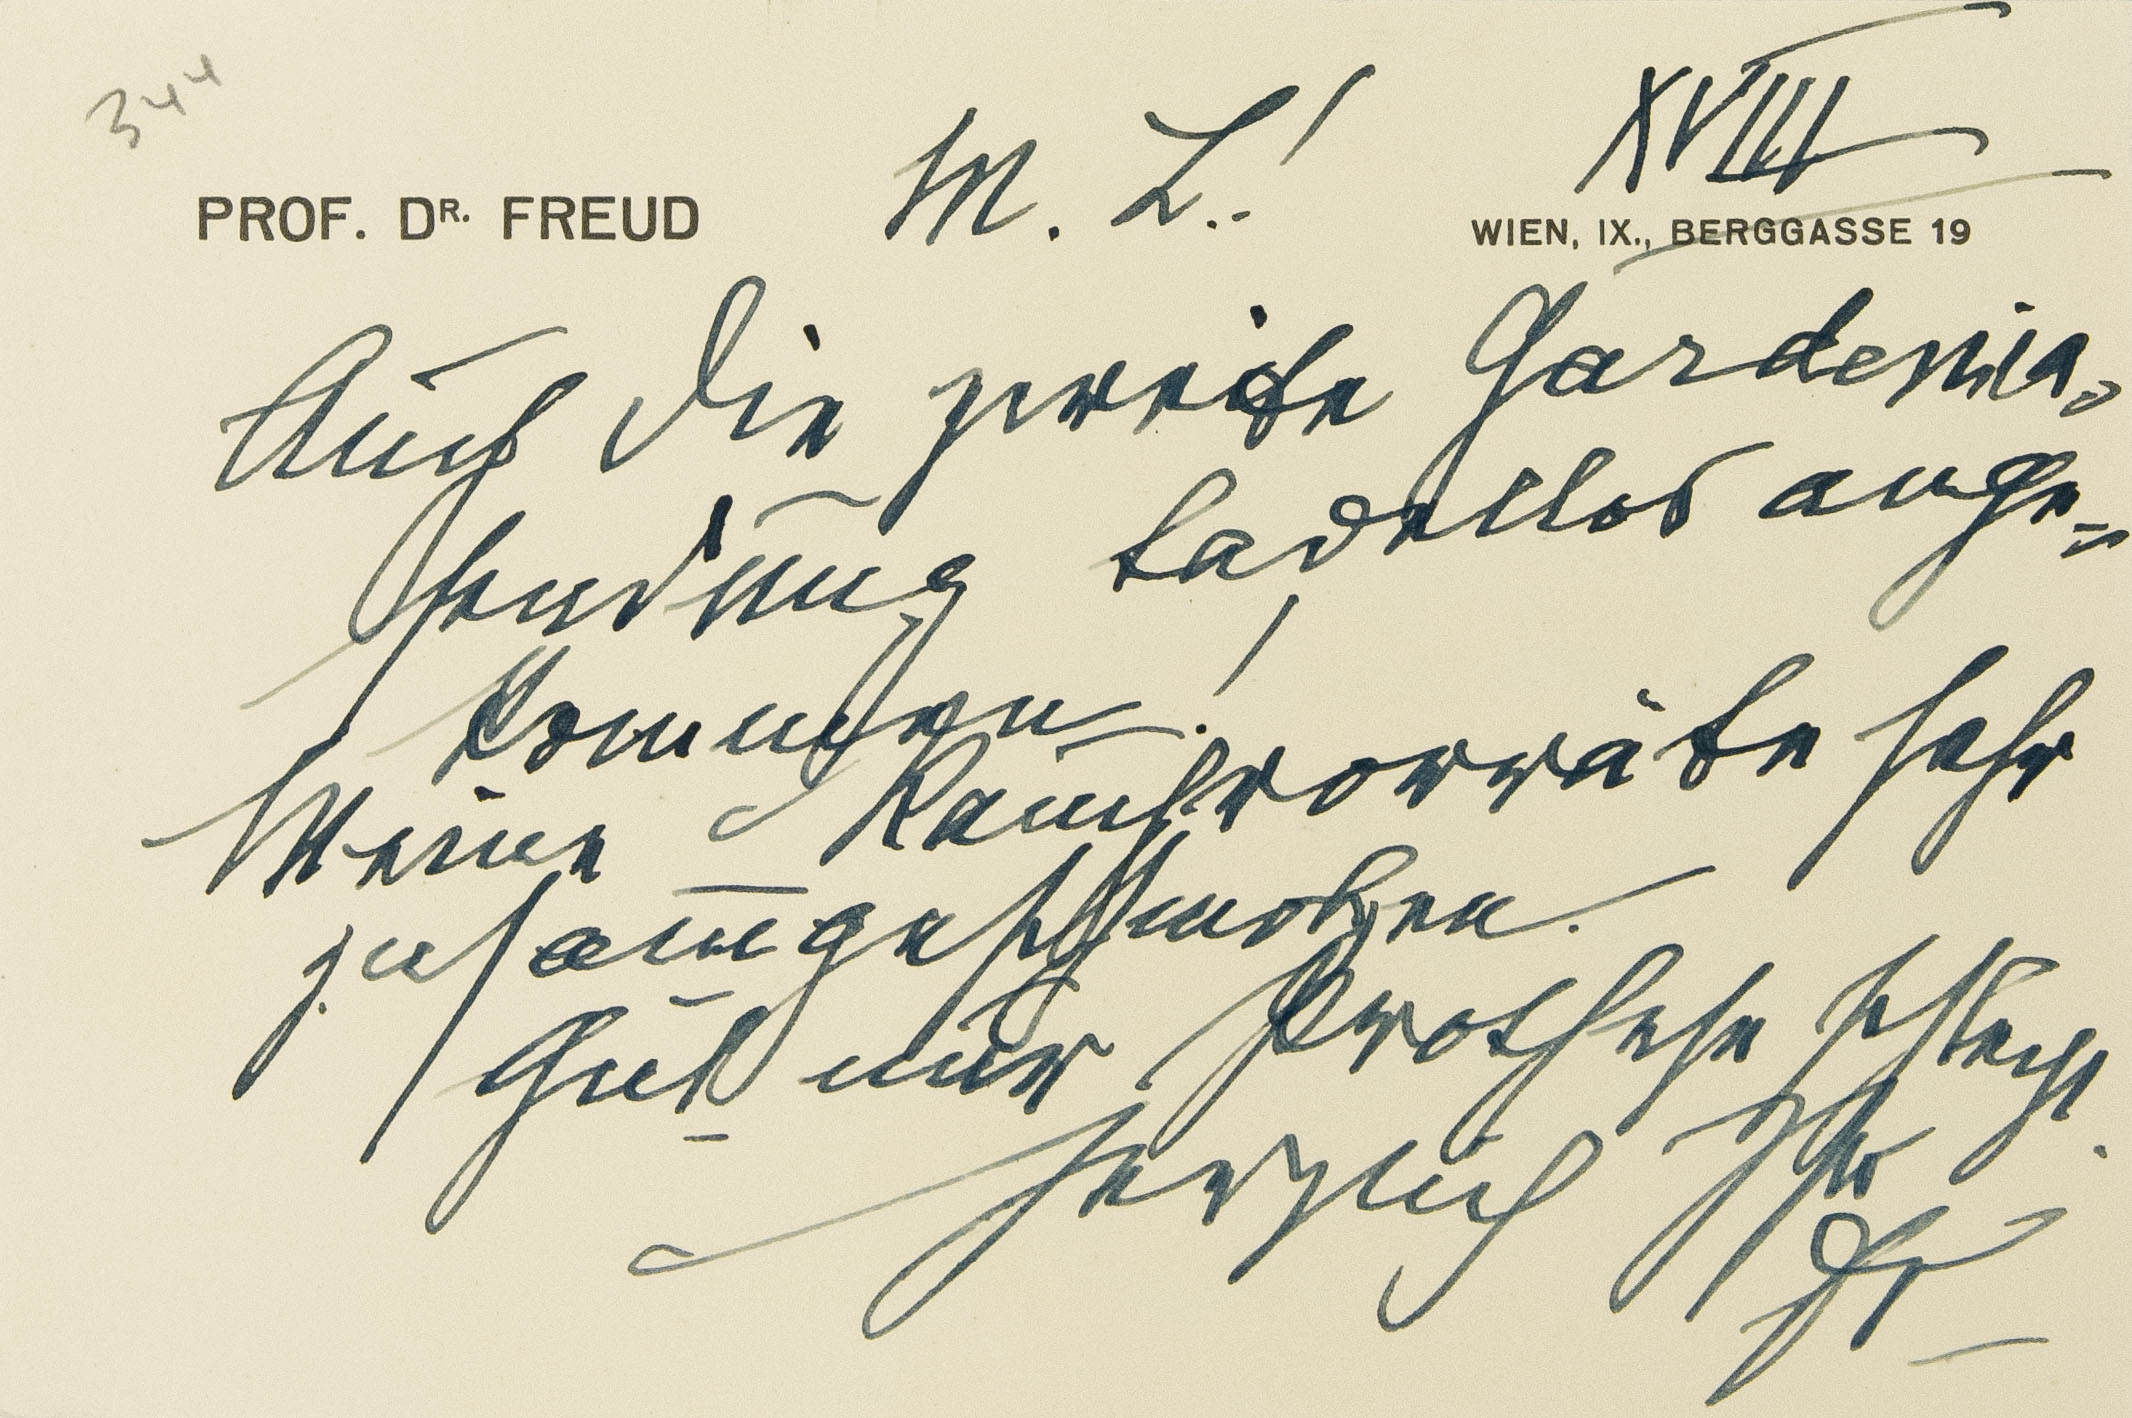 344
M. L.!
XVIII
PROF. DR. FREUD
WIEN, IX., BERGGASSE 19
Auch die zweite Gardenia-
sendung tadellos ange-
kommen!
Meine Rauchvorräte sehr
zusam̅geschmolzen.
Gut nur Prothese schlecht.
Herzlich Ihr
Fr